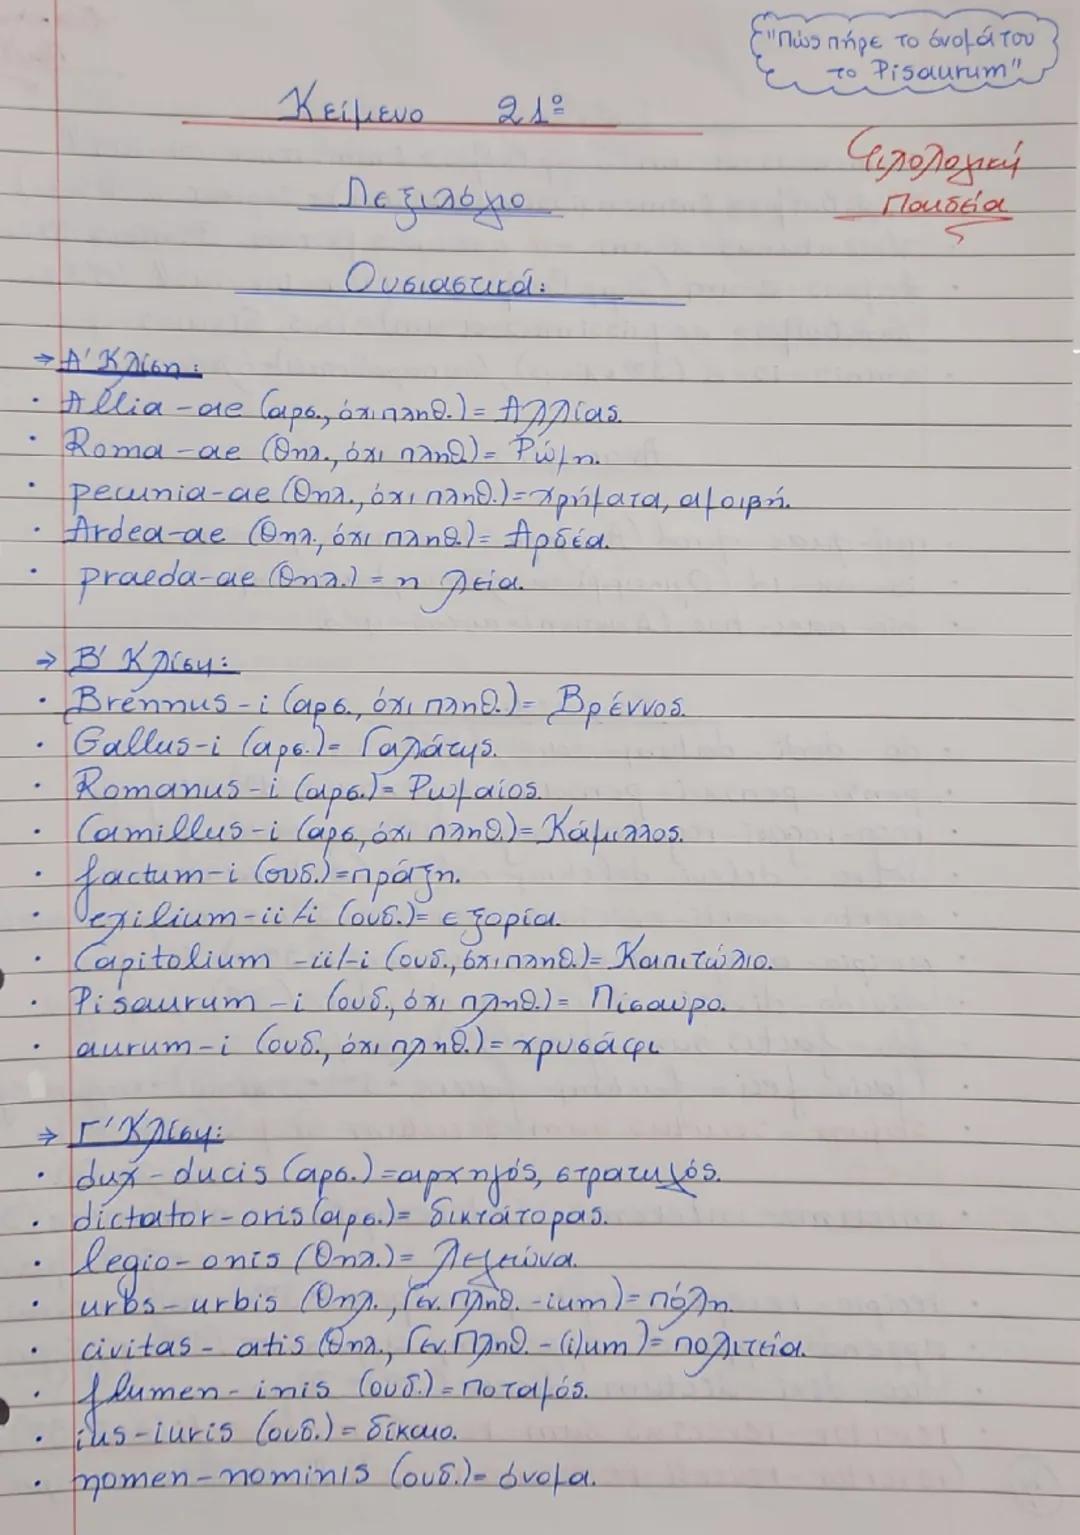 "Πώς πήρε το όνομά του
το Pisaurum"
Κείμενο 21º
Φιλολογική
Παιδεία
Λεξιλόγιο
Ουσιαστικά:
→ Α' Κλίση:
• Allia -ae (αρσ., όχι πληθ.) = Αλλίας.
• Roma -ae (θηλ., όχι πληθ) = Ρώμη.
• pecunia-ae (θηλ., όχι πληθ.) = χρήματα, αμοιβή.
• Ardea-ae (θηλ., όχι πληθ.) = Αρδέα.
• praeda-ae (θηλ.) = η λεία.
→ Β' Κλίση:
• Brennus - i (αρσ., όχι πληθ.) = Βρέννος.
• Gallus-i (αρσ.) = Γαλάτης.
• Romanus - i (αρσ.) = Ρωμαίος.
• Camillus-i (αρσ, όχι πληθ.) = Κάμιλλος.
• factum-i (ουδ.) = πράξη.
• exilium-ii/-i (ουδ.) = εξορία.
• Capitolium -ii/-i (ουδ., όχι πληθ.) = Καπιτώλιο.
• Pisaurum -i (ουδ., όχι πληθ.) = Πίσαυρο.
• aurum-i (ουδ., όχι πληθ.) = χρυσάφι
→ Γ' Κλίση:
• dux - ducis (αρσ.) = αρχηγός, στρατηγός.
• dictator - oris (αρσ.) = δικτάτορας.
• legio- onis (θηλ.) = λεγεώνα.
• urbs - urbis (θηλ., Γεν. Πληθ. -ium) = πόλη.
• civitas - atis (θηλ., Γεν. Πληθ - (i)um) = πολιτεία.
• flumen - inis (ουδ.) = ποταμός.
• ius-iuris (ουδ.) = δίκαιο.
• nomen-nominis (ουδ.) = όνομα.